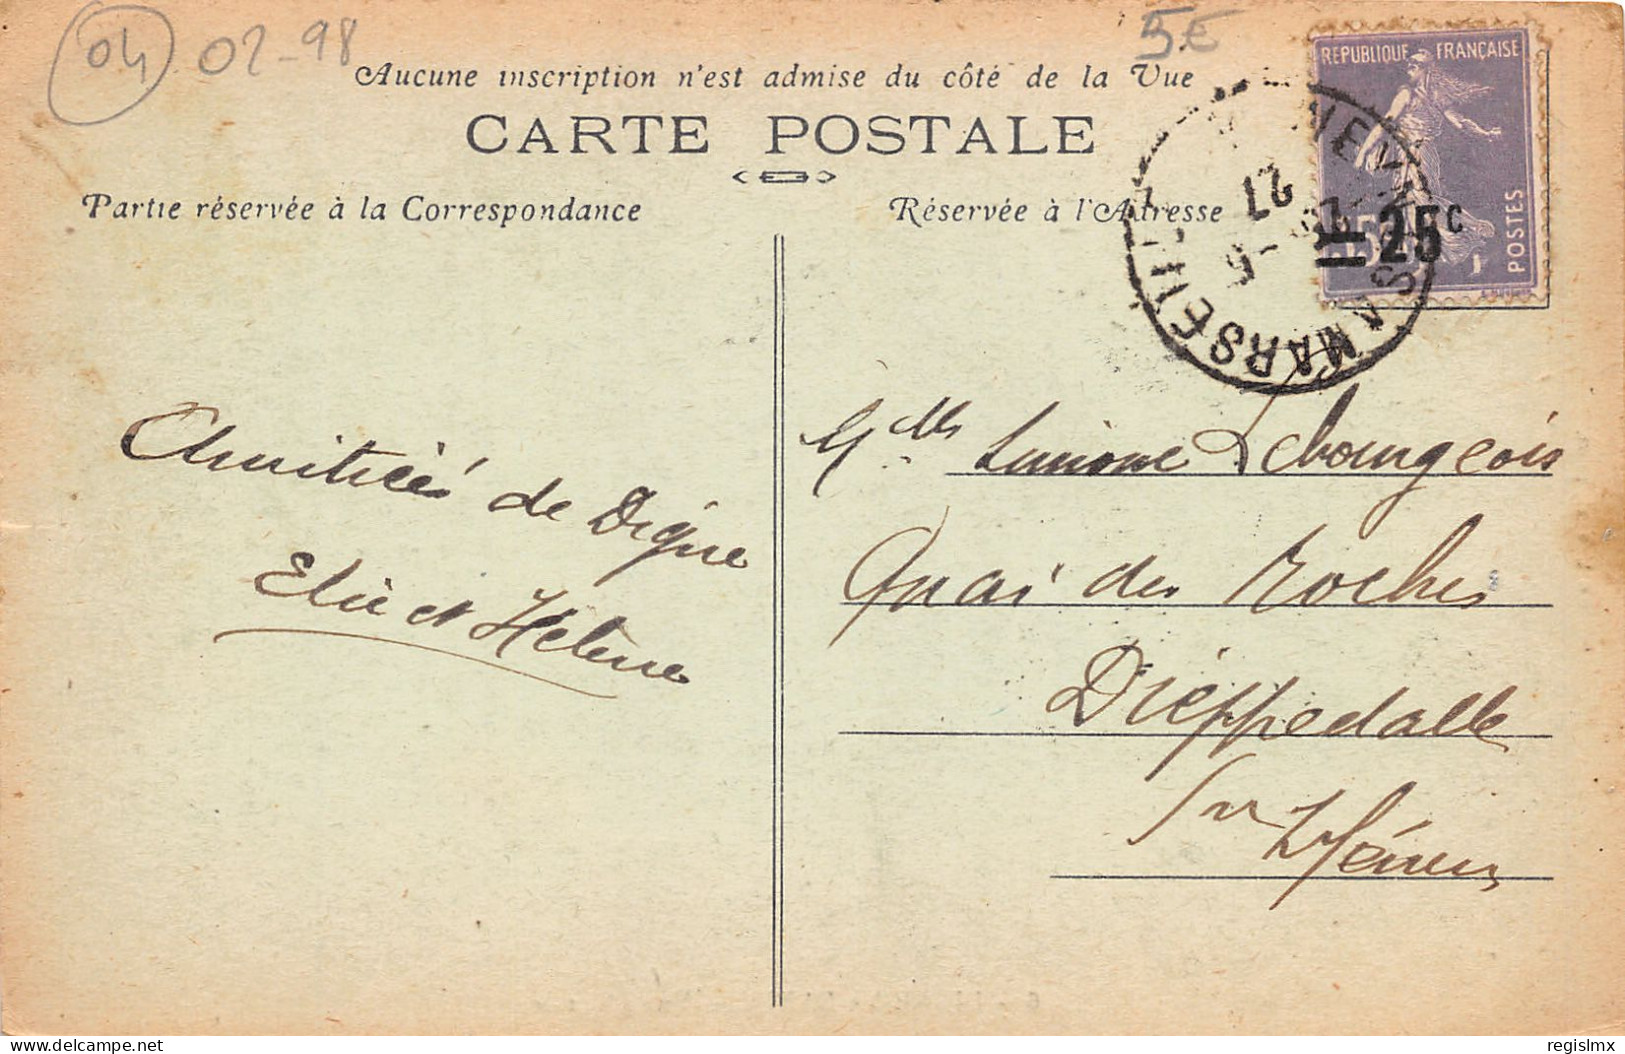 04 02-98
5€
Aucune inscription n'est admise du côté de la Vue
CARTE POSTALE
Partie réservée à la Correspondance
Réservée à l'Adresse
REPUBLIQUE FRANÇAISE
POSTES
25c
27
MARSEILLE
Amitiées de Digne
Elie et Helene
Melle Simone Lebourgeois
Quai des Roches
Dieppedalle
Sne Inférieure
Delcampe.net
regislmx